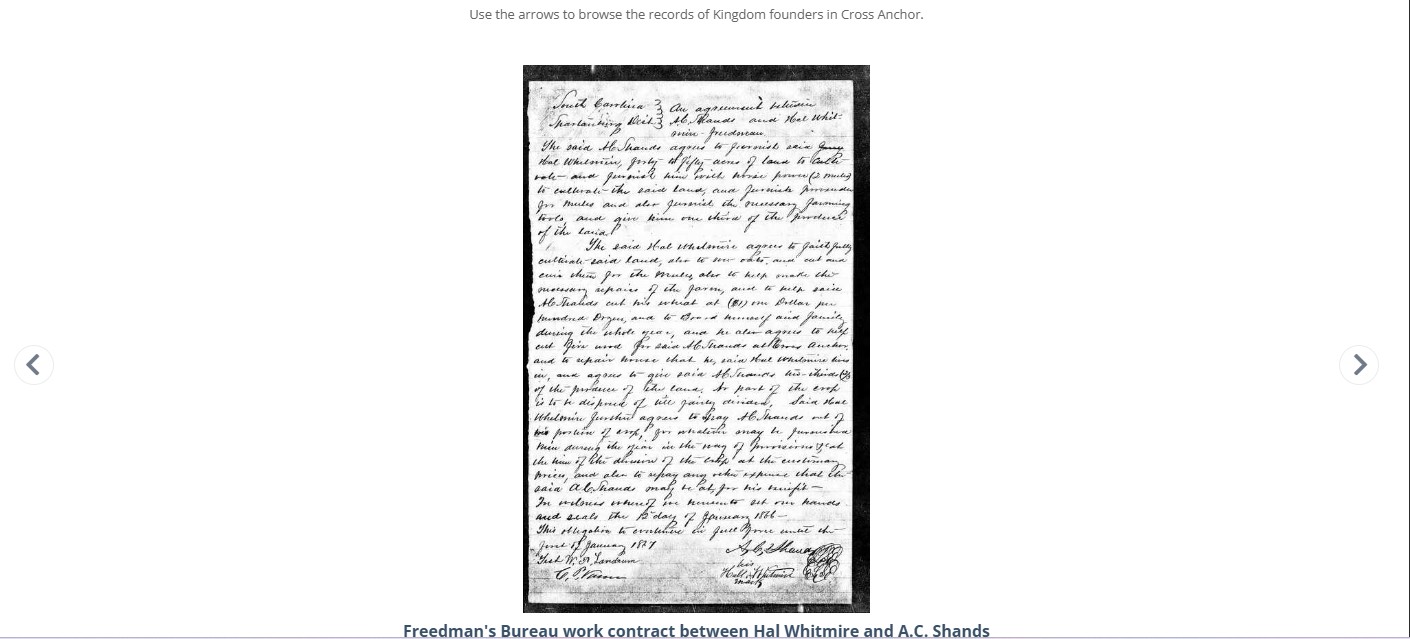 Use the arrows to browse the records of Kingdom founders in Cross Anchor.
South Carolina
Spartanburg Dist
An agreement between
A.C. Shands and Hal Whit-
mire - freedman
The said A.C. Shands agrees to furnish said
Hal Whitmire, forty to fifty acres of land to culti-
vate - and furnish him with horse power (2 mules)
to cultivate the said land, and furnish provender
for mules and also furnish the necessary farming
tools, and give him one third of the produce
of the land.
The said Hal Whitmire agrees to faithfully
cultivate said land, also to sow oats, and cut and
cure them for the mules, also to help make the
necessary repairs of the farm, and to help said
A.C. Shands cut his wheat at ($1) one Dollar per
hundred Dozen, and to Board himself and family
during the whole year, and he also agrees to help
cut fire wood for said A.C. Shands at Cross Anchor,
and to repair house that he, said Hal Whitmire lives
in, and agrees to give said A.C. Shands two-thirds
of the produce of the land. No part of the crop
is to be disposed of till fairly divided, Said Hal
Whitmire further agrees to pay A.C. Shands out of
his portion of crop, for whatever may be furnished
him during the year in the way of provisions &c at
the time of the division of the crop at the customary
prices, and also to repay any other expense that the
said A.C. Shands may be at, for his benefit -
In witness whereof we hereunto set our hands
and seals the day of January 1866 -
This obligation to continue in full force until the
first of January 1867
Test W. Landrum
A.C. Shands
his
Hall Whitmire
mark
Freedman's Bureau work contract between Hal Whitmire and A.C. Shands